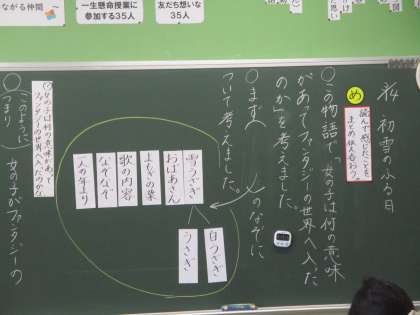 ながる仲間 ～
一生懸命授業に
参加する35人
友だち想いな
31人
3/4 初雪のふる日
め
読んで感じたことを
まとめ伝え合おう。
○この物語で、女の子は何の意味
があってファンタジーの世界へ入った
のか」を考えました。
○まず( )のなぞに
ついて考えました。
雪うさぎ
おばあさん
よもぎの葉
歌の内容
なぞなぞ
白うさぎ
うさぎ
女の子は何の意味があって
ファンタジーの世界へ入ったのかな
(このように
つまり)
○
女の子がファンタジーの